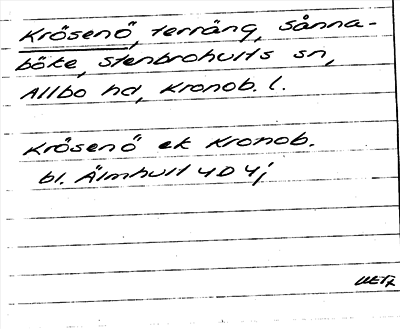 Krösenö, terräng, Sånna-
böke, Stenbrohults sn,
Allbo hd, Kronob. l.
Krösenö ek Kronob.
bl. Älmhult 4D 4j